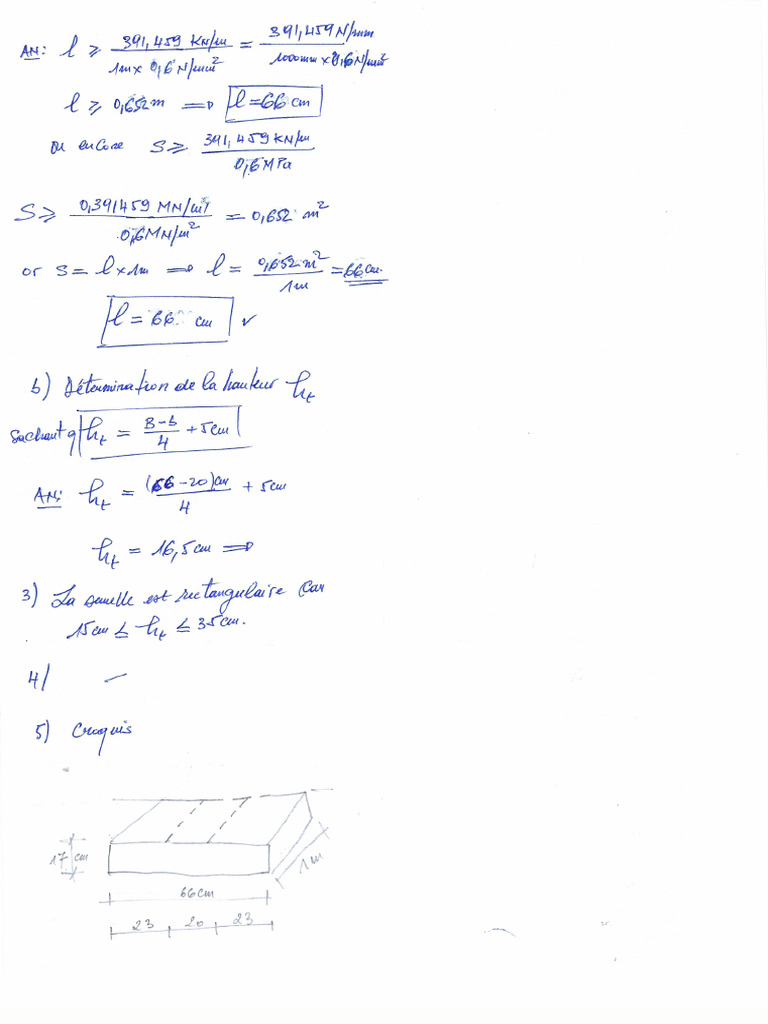 AN: l ≥ 391,459 KN/m / 1m x 0,6 N/mm² = 391,459 N/mm / 1000mm x 0,6 N/mm²
l ≥ 0,652m ⟹ l = 66 cm
Ou encore S ≥ 391,459 KN/m / 0,6 MPa
S ≥ 0,391459 MN/m / 0,6 MN/m² = 0,652 m²
or S = l x 1m ⟹ l = 0,652 m² / 1m = 66 cm.
l = 66 cm ✓
b) Détermination de la hauteur ht
Sachant q ht = B-b / 4 + 5cm
AN: ht = (66-20)cm / 4 + 5cm
ht = 16,5cm ⟹
3) La semelle est rectangulaire Car
15cm ≤ ht ≤ 35cm.
4/ —
5) Croquis
17 cm
1m
66cm
23 20 23